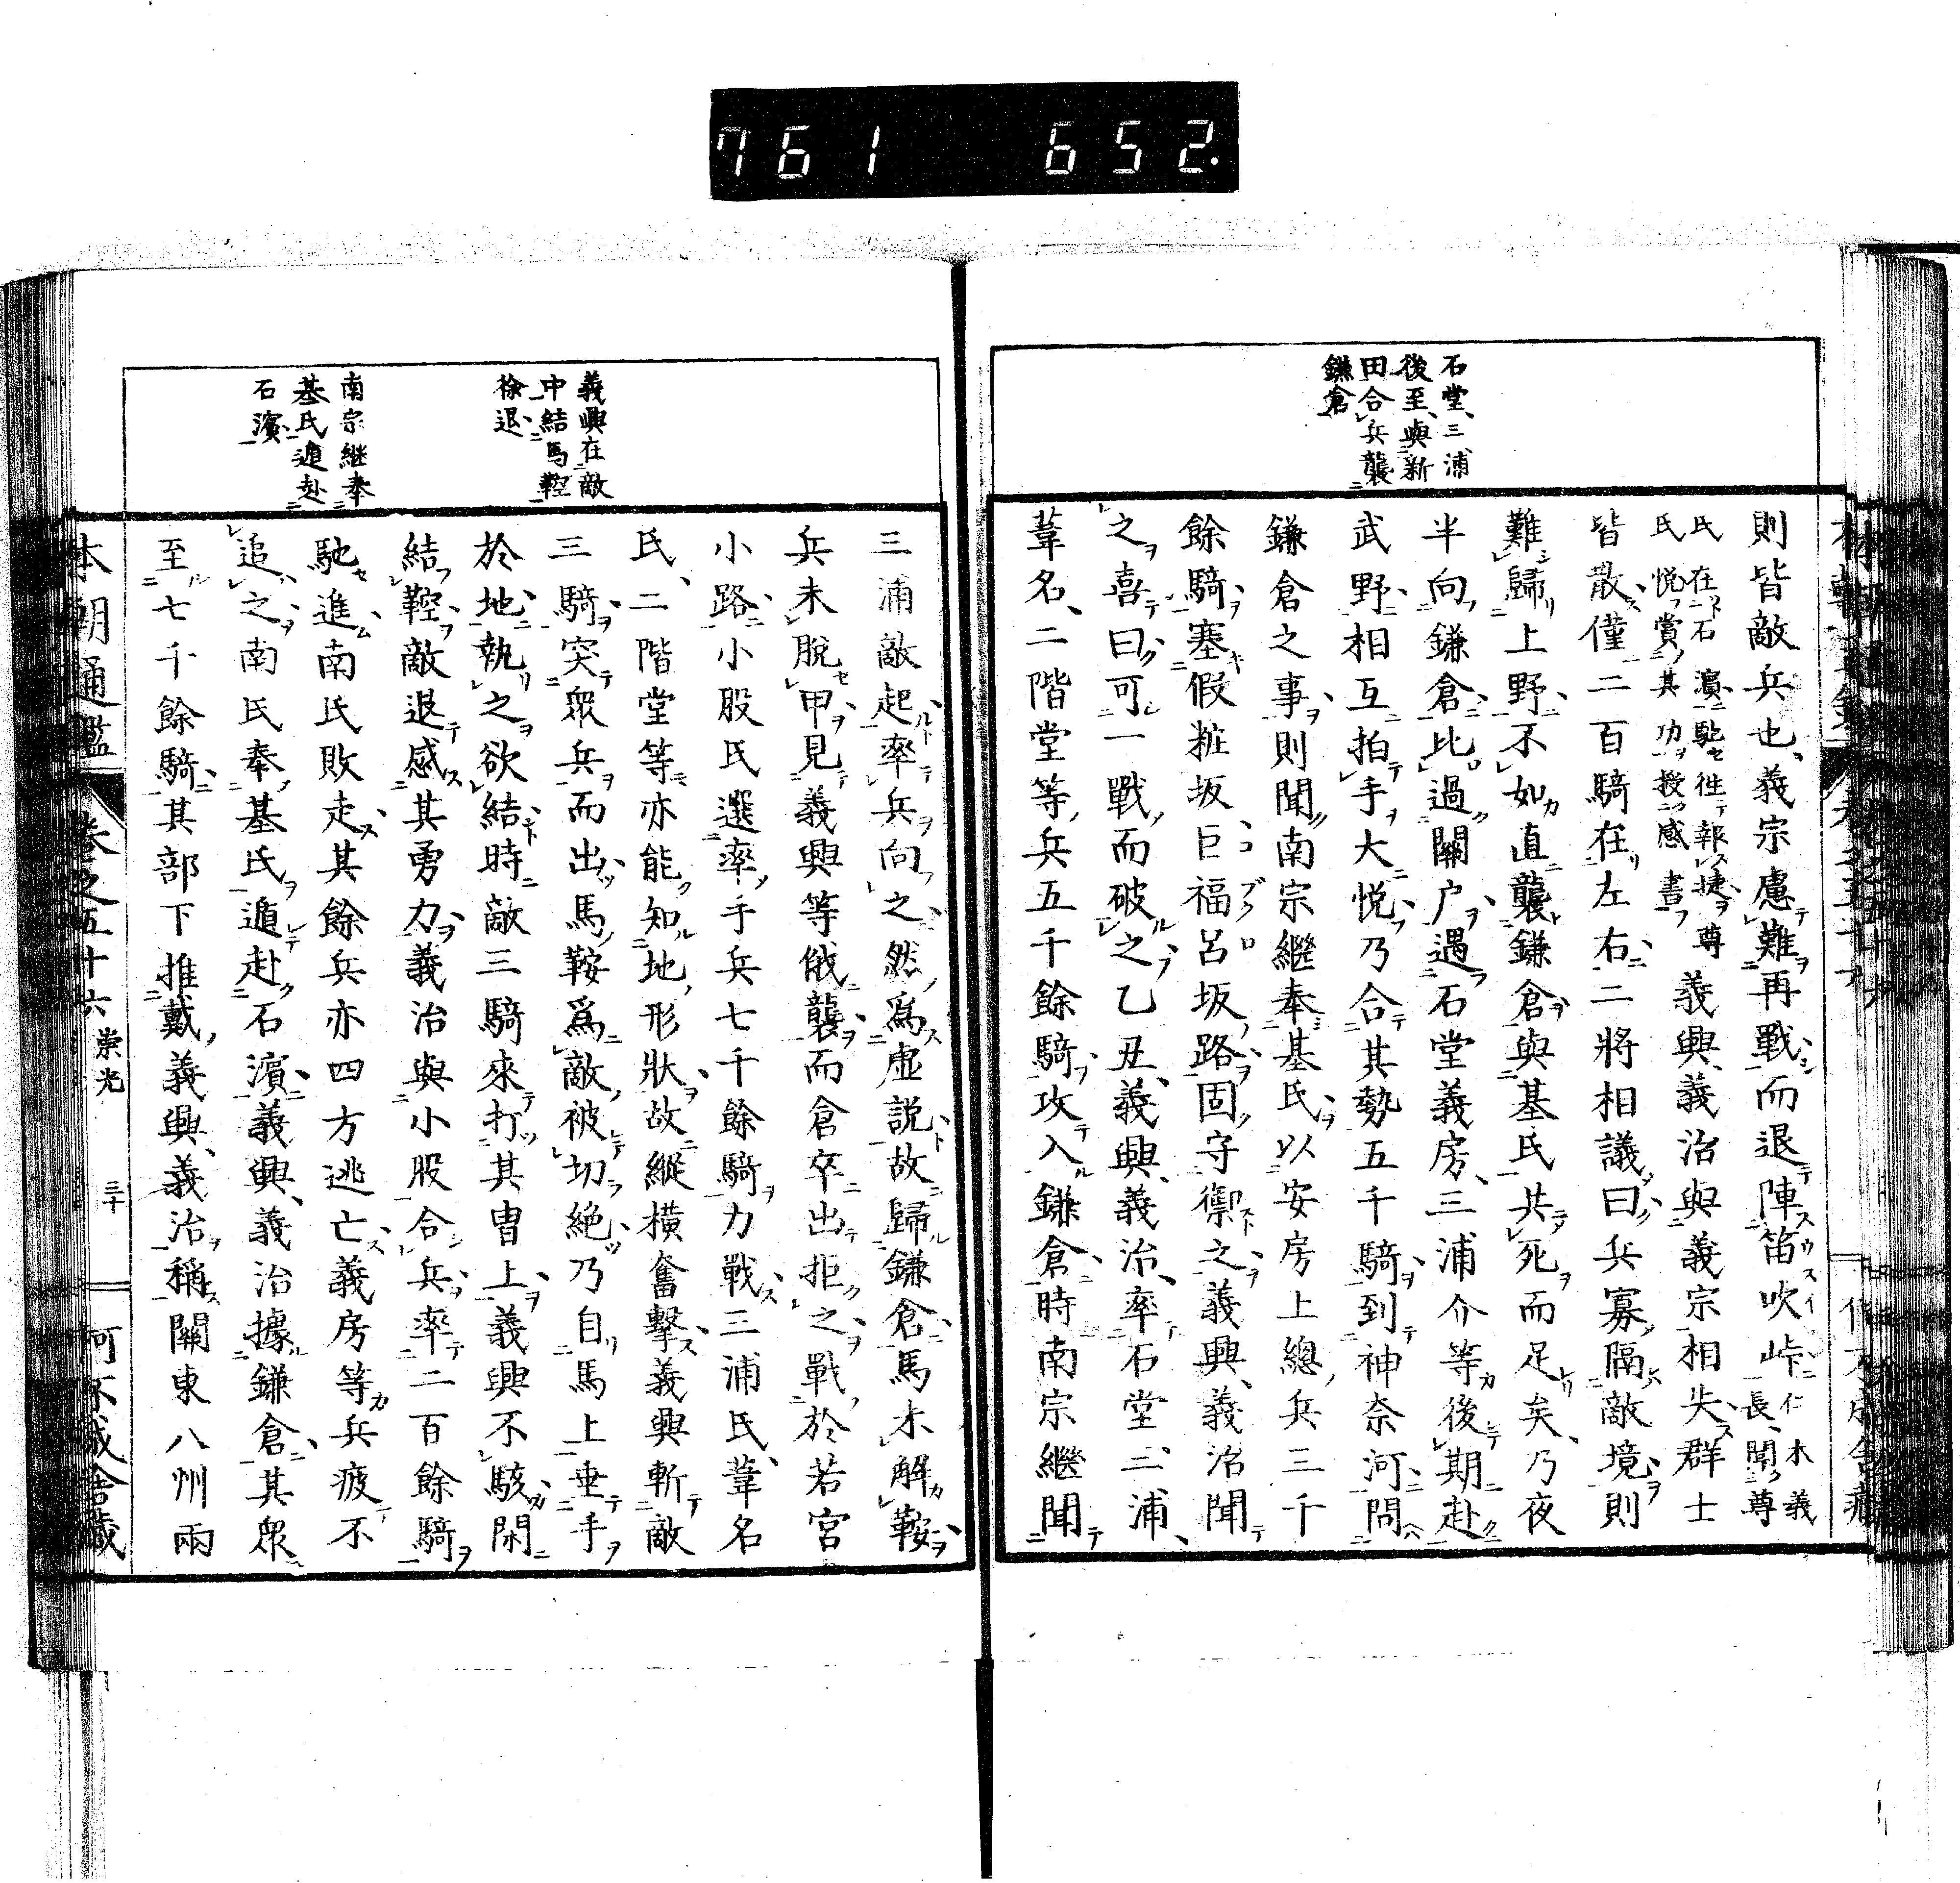 761 652.
石堂、三浦
後至、與新
田合兵襲
鎌倉
則皆敵兵也、義宗慮難再戰、而退陣笛吹峠仁木義長、聞尊
氏在石濱、馳徃報捷、尊氏悦賞其功、授感書義興、義治與義宗相失、群士
皆散、僅二百騎在左右、二將相議曰、兵寡、隔敵境、則
難歸上野、不如直襲鎌倉、與基氏共死而足矣、乃夜
半向鎌倉、比過關戸、遇石堂義房、三浦介等後期赴
武野、相互拍手大悦、乃合其勢五千騎、到神奈河、問
鎌倉之事、則聞南宗繼奉基氏、以安房上總兵三千
餘騎、塞假粧坂、巨福呂坂路、固守禦之、義興、義治聞
之喜曰、可一戰而破之、乙丑、義興、義治、率石堂、三浦、
葦名、二階堂等、兵五千餘騎、攻入鎌倉、時南宗繼聞
義興在敵
中結馬鞚
徐退
南宗繼奉
基氏遁赴
石濱
三浦敵起、率兵向之、然爲虚説、故歸鎌倉、馬未解鞍、
兵未脱甲、見義興等俄襲、而倉卒出拒之、戰於若宮
小路、小股氏選率手兵七千餘騎力戰、三浦氏、葦名
氏、二階堂等亦能知地形状、故縱横奮擊、義興斬敵
三騎、突衆兵而出、馬鞍爲敵被切絶、乃自馬上垂手
於地、執之欲結時、敵三騎來打其冑上、義興不駭、閑
結鞚、敵退感其勇力、義治與小股合兵、率二百餘騎
馳進、南氏敗走、其餘兵亦四方逃亡、義房等兵疲不
追之、南氏奉基氏遁赴石濱、義興、義治據鎌倉、其衆
至七千餘騎、其部下推戴義興、義治、稱關東八州兩
本朝通鑑 卷之五十六 崇光 三十